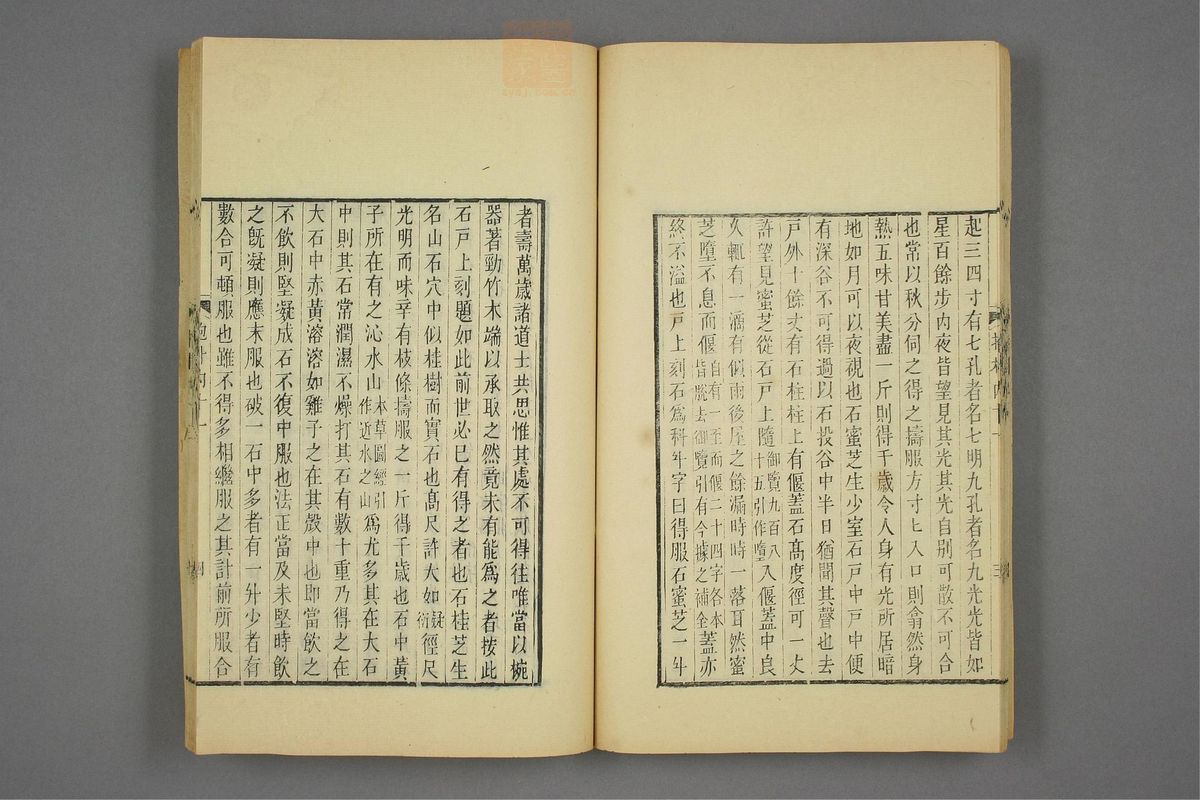 起三四寸有七孔者名七明九孔者名九光光皆如
星百餘步內夜皆望見其光其光自別可散不可合
也常以秋分伺之得之擣服方寸匕入口則翕然身
熱五味甘美盡一斤則得千歲令人身有光所居暗
地如月可以夜視也石蜜芝生少室石戶中戶中便
有深谷不可得過以石投谷中半日猶聞其聲也去
戶外十餘丈有石柱柱上有偃蓋石高度徑可一丈
許望見蜜芝從石戶上隨御覽九百八十五引作墮入偃蓋中良
久輒有一滴有似雨後屋之餘漏時時一落耳然蜜
芝墮不息而偃自有一至而偃二十四字各本皆脫去御覽引有今據之補全蓋亦
終不溢也戶上刻石為科斗字曰得服石蜜芝一斗
者壽萬歲諸道士共思惟其處不可得往唯當以椀
器著勁竹木端以承取之然竟未有能為之者按此
石戶上刻題如此前世必已有得之者也石桂芝生
名山石穴中似桂樹而實石也高尺許大如疑衍徑尺
光明而味辛有枝條擣服之一斤得千歲也石中黃
子所在有之沁水山本草圖經引作近水之山為尤多其在大石
中則其石常潤濕不燥打其石有數十重乃得之在
大石中赤黃溶溶如雞子之在其殼中也即當飲之
不飲則堅凝成石不復中服也法正當及未堅時飲
之既凝則應末服也破一石中多者有一升少者有
數合可頓服也雖不得多相繼服之其計前所服合